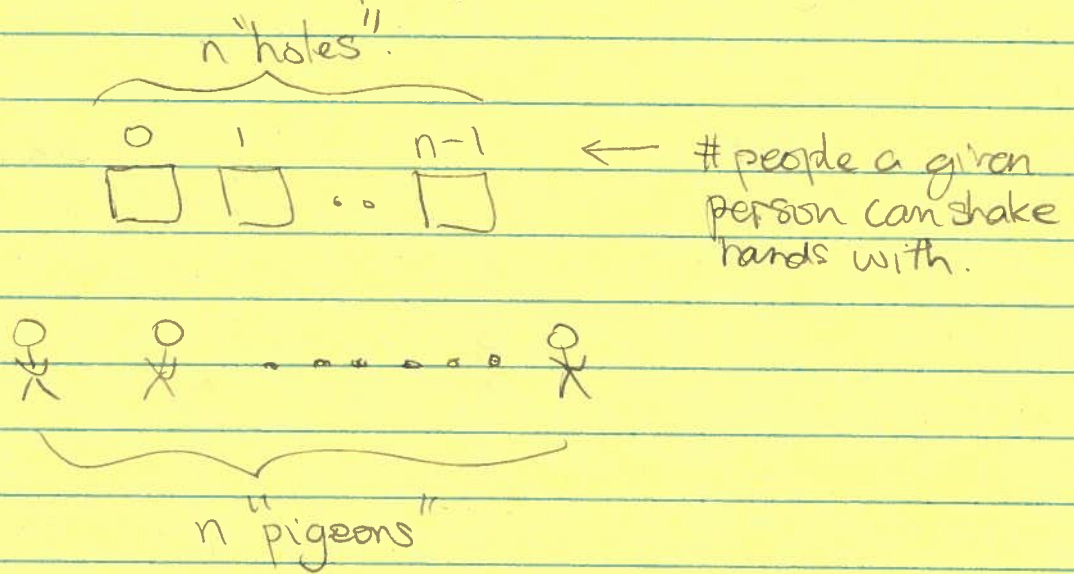 n "holes".
0 1 n-1 ← # people a given
person can shake
hands with.
n "pigeons"